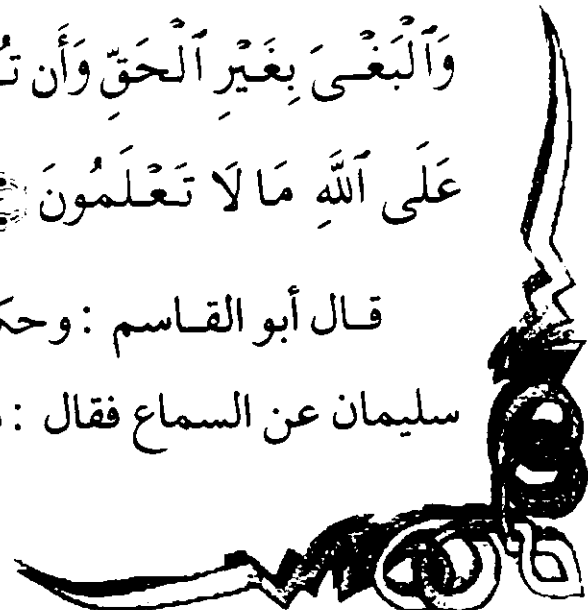 وَٱلْبَغْىَ بِغَيْرِ ٱلْحَقِّ وَأَن
عَلَى ٱللَّهِ مَا لَا تَعْلَمُونَ
قال أبو القاسم : وحك
سليمان عن السماع فقال :